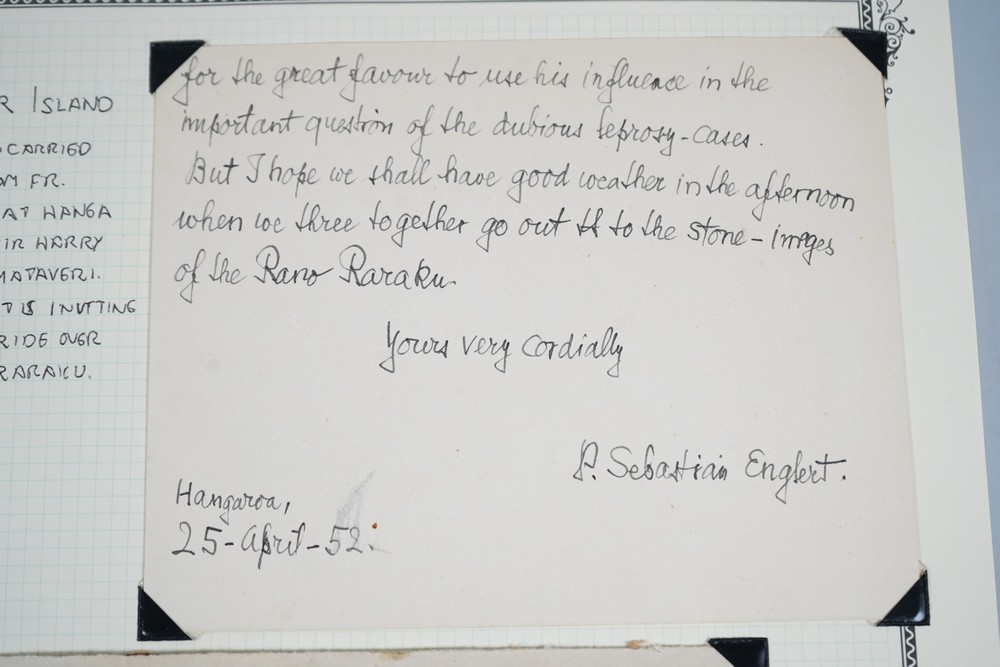 R ISLAND
CARRIED
OM FR.
AT HANGA
SIR HARRY
MATAVERI.
T IS INVITING
RIDE OVER
RARAKU.
for the great favour to use his influence in the
important question of the dubious leprosy-cases.
But I hope we shall have good weather in the afternoon
when we three together go out to the stone-images
of the Rano Raraku.
Yours very cordially
P. Sebastian Englert.
Hangaroa,
25-April-52.